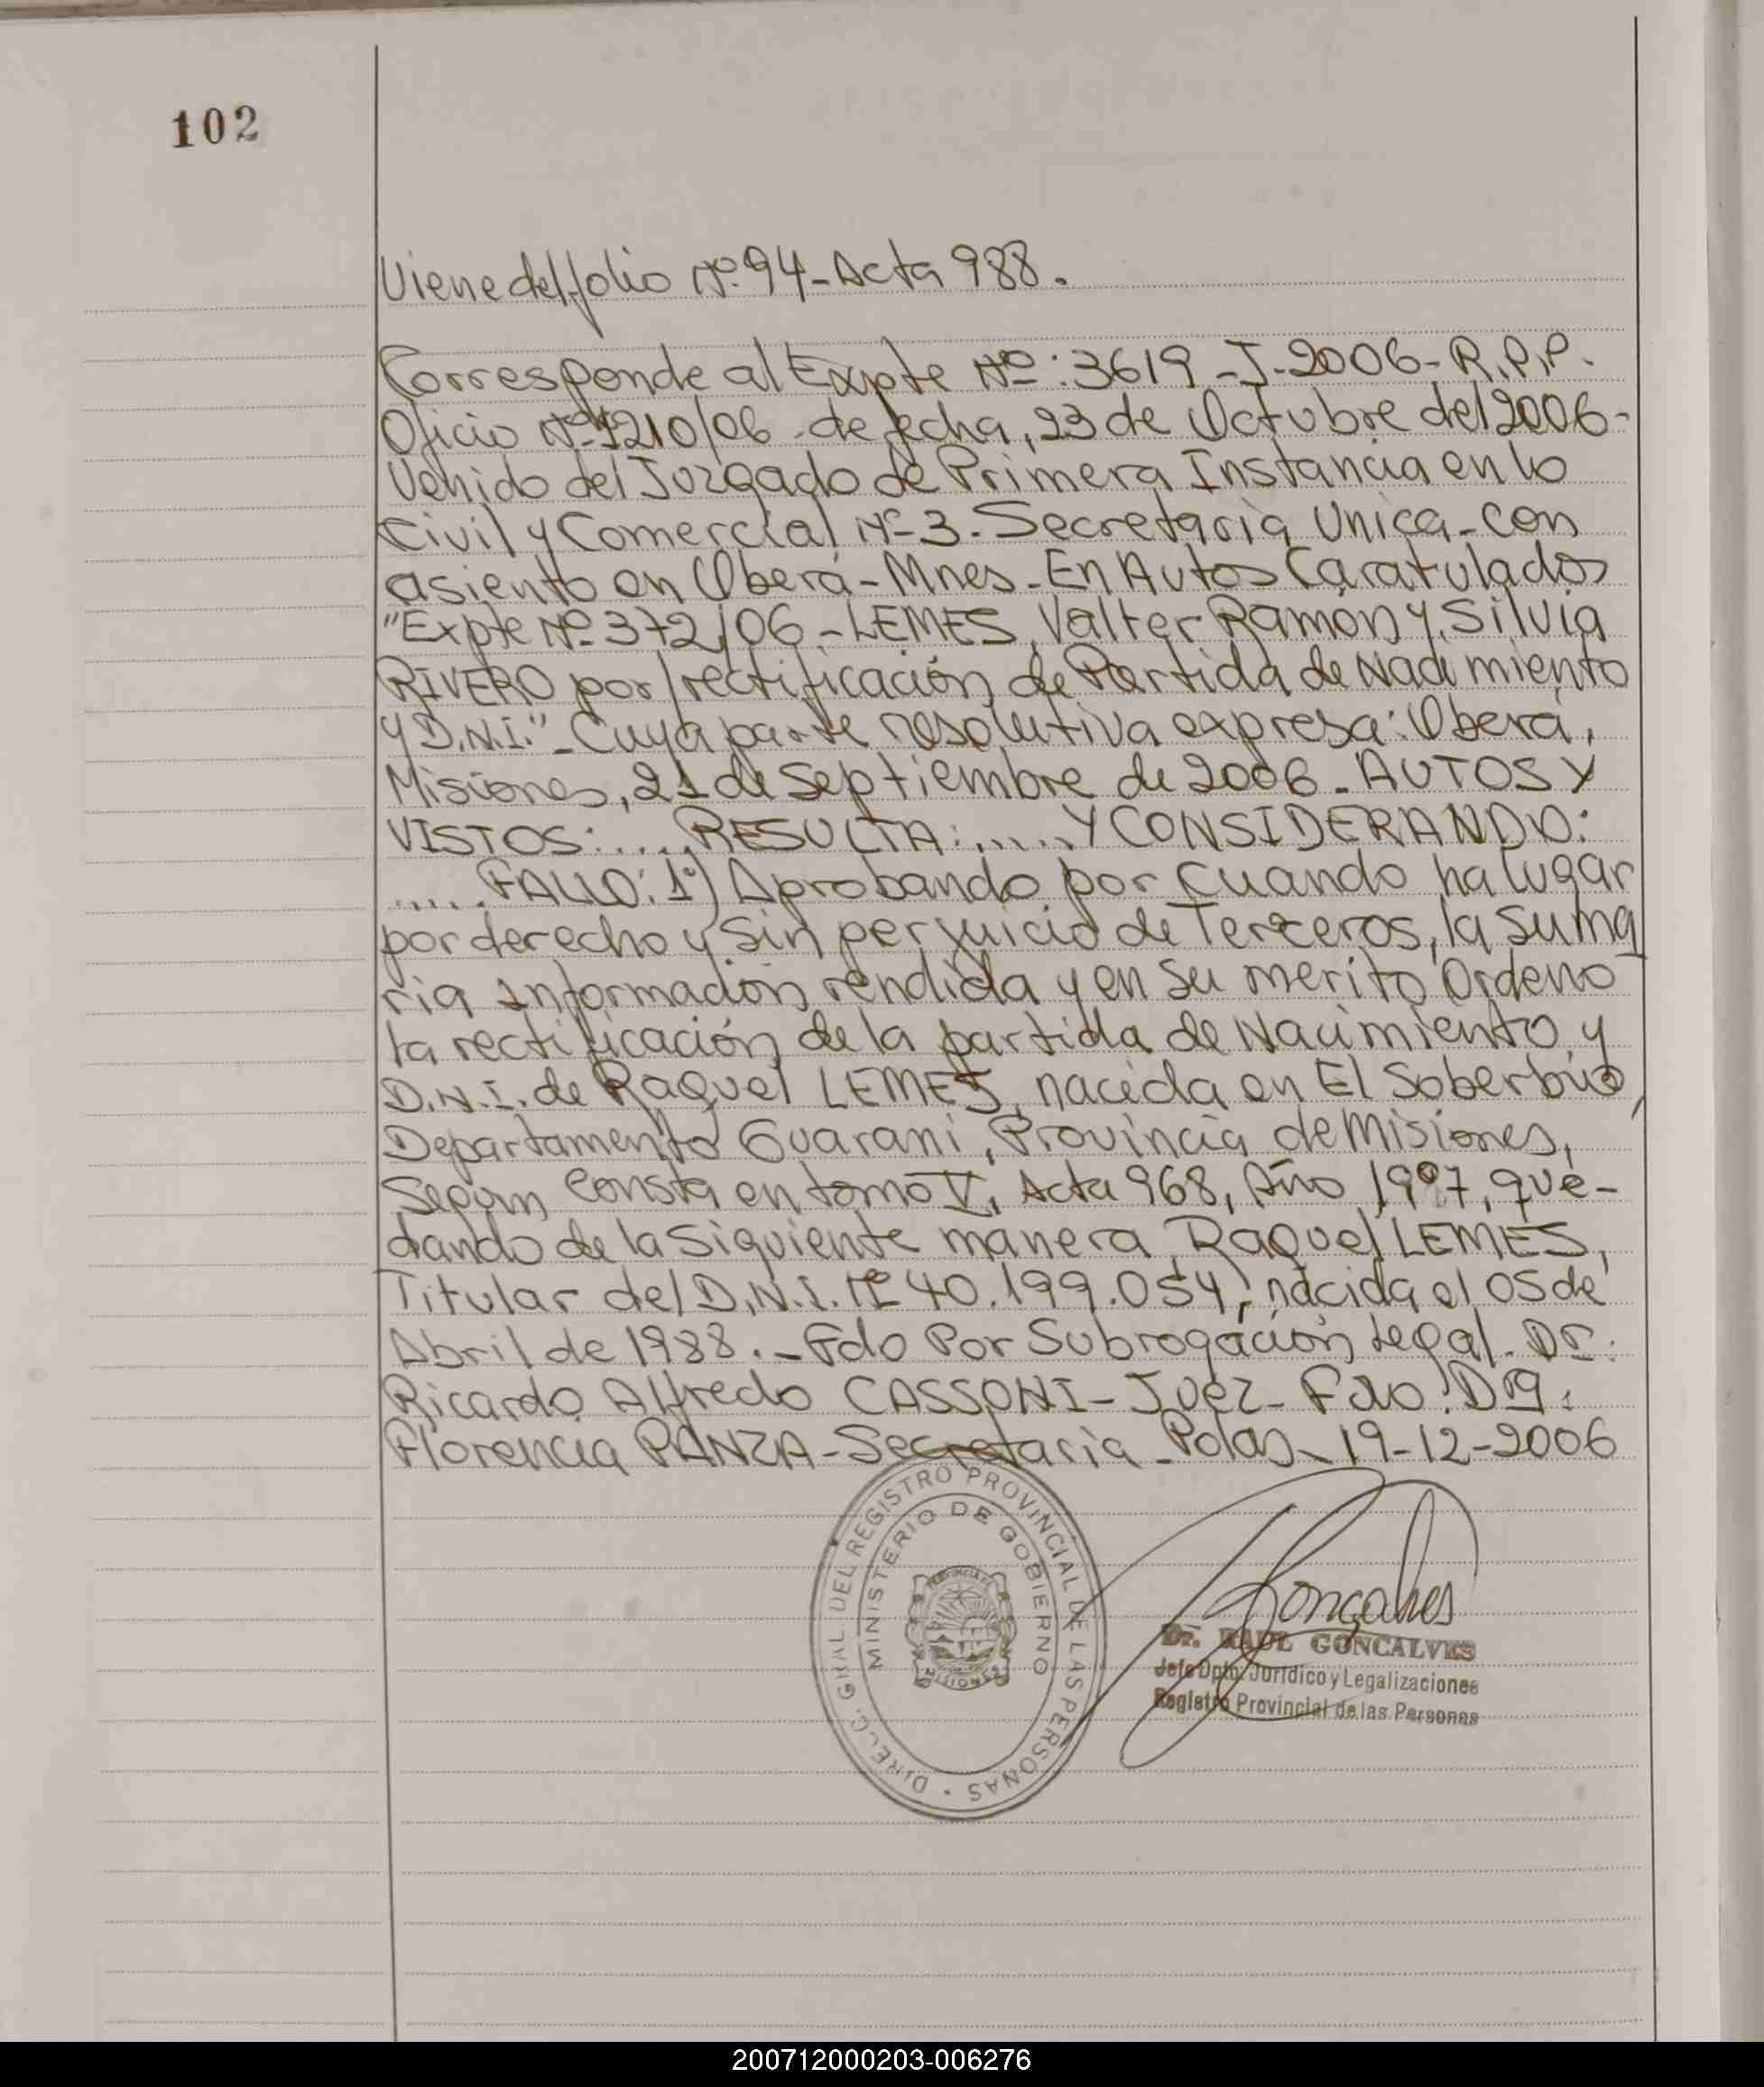 102
Viene del folio Nº 94 - Acta 988.
Corresponde al Expte Nº: 3619 - J - 2006 - R.P.P.
Oficio Nº 1210/06 - de fecha, 23 de Octubre del 2006 -
Venido del Juzgado de Primera Instancia en lo
Civil y Comercial Nº 3 - Secretaria Unica - con
asiento en Oberá - Mnes - En Autos Caratulados
"Expte Nº 372/06 - LEMES, Valter Ramón y Silvia
RIVERO por/rectificación de Partida de Nacimiento
y D.N.I." - Cuya parte resolutiva expresa: Oberá,
Misiones, 21 de Septiembre de 2006 - AUTOS Y
VISTOS: ..... RESULTA: ..... Y CONSIDERANDO:
..... FALLO: 1º) Aprobando por cuando ha lugar
por derecho y sin perjuicio de Terceros, la suma
ria información rendida y en su merito Ordeno
la rectificación de la partida de Nacimiento y
D.N.I. de Raquel LEMES, nacida en El Soberbio,
Departamento Guarani, Provincia de Misiones,
Segun Consta en tomo V, Acta 968, Año 1997, que-
dando de la Siguiente manera Raquel LEMES,
Titular del D.N.I. Nº 40.199.054, nacida el 05 de
Abril de 1988. - Fdo Por Subrogación Legal. Dr.
Ricardo Alfredo CASSONI - Juez - Fdo. Dra.
Florencia PANZA - Secretaria - Pdas - 19-12-2006
DIREC. GRAL. DEL REGISTRO PROVINCIAL DE LAS PERSONAS
MINISTERIO DE GOBIERNO
Goncalves
Dr. RAUL GONCALVES
Jefe Dpto. Jurídico y Legalizaciones
Registro Provincial de las Personas
200712000203-006276